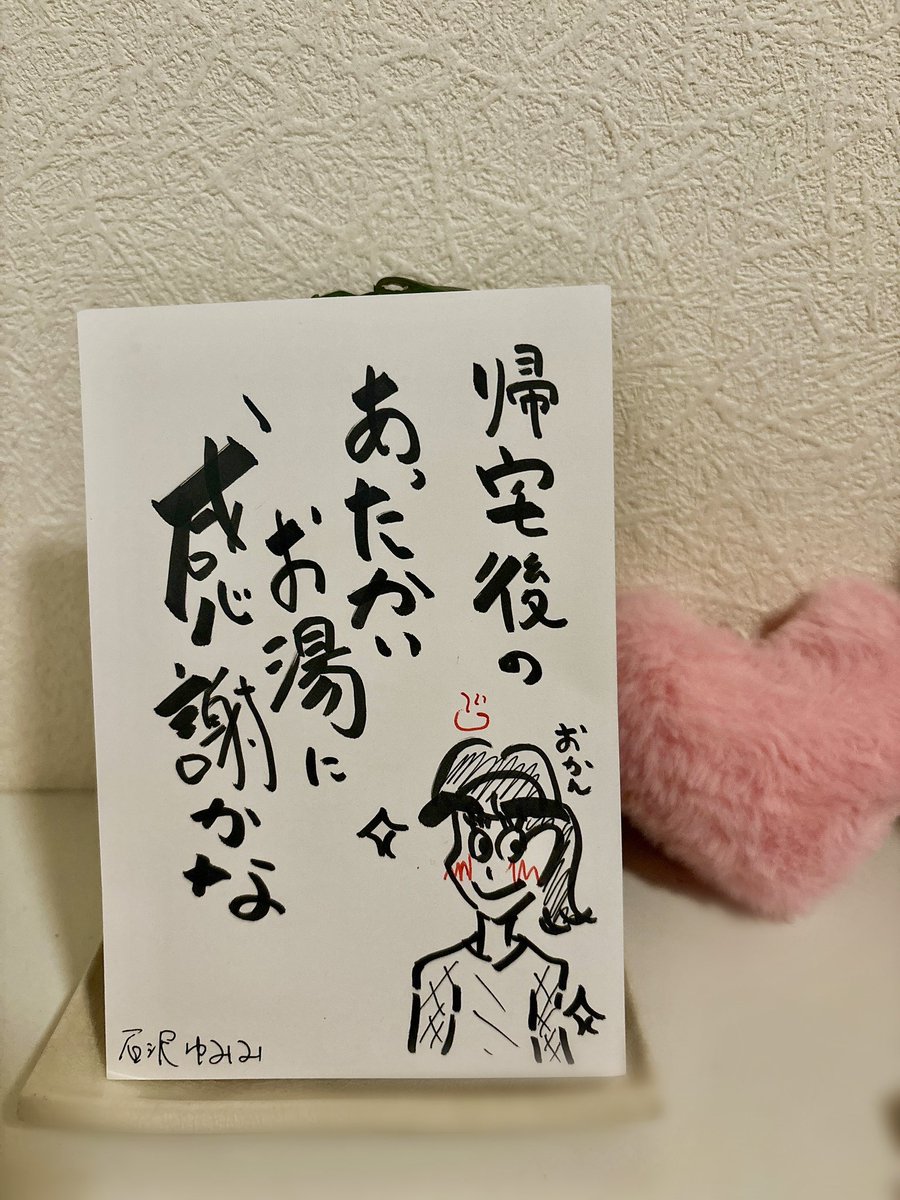 帰宅後の
あったかい
お湯に
感謝かな
おかん
石沢ゆみみ